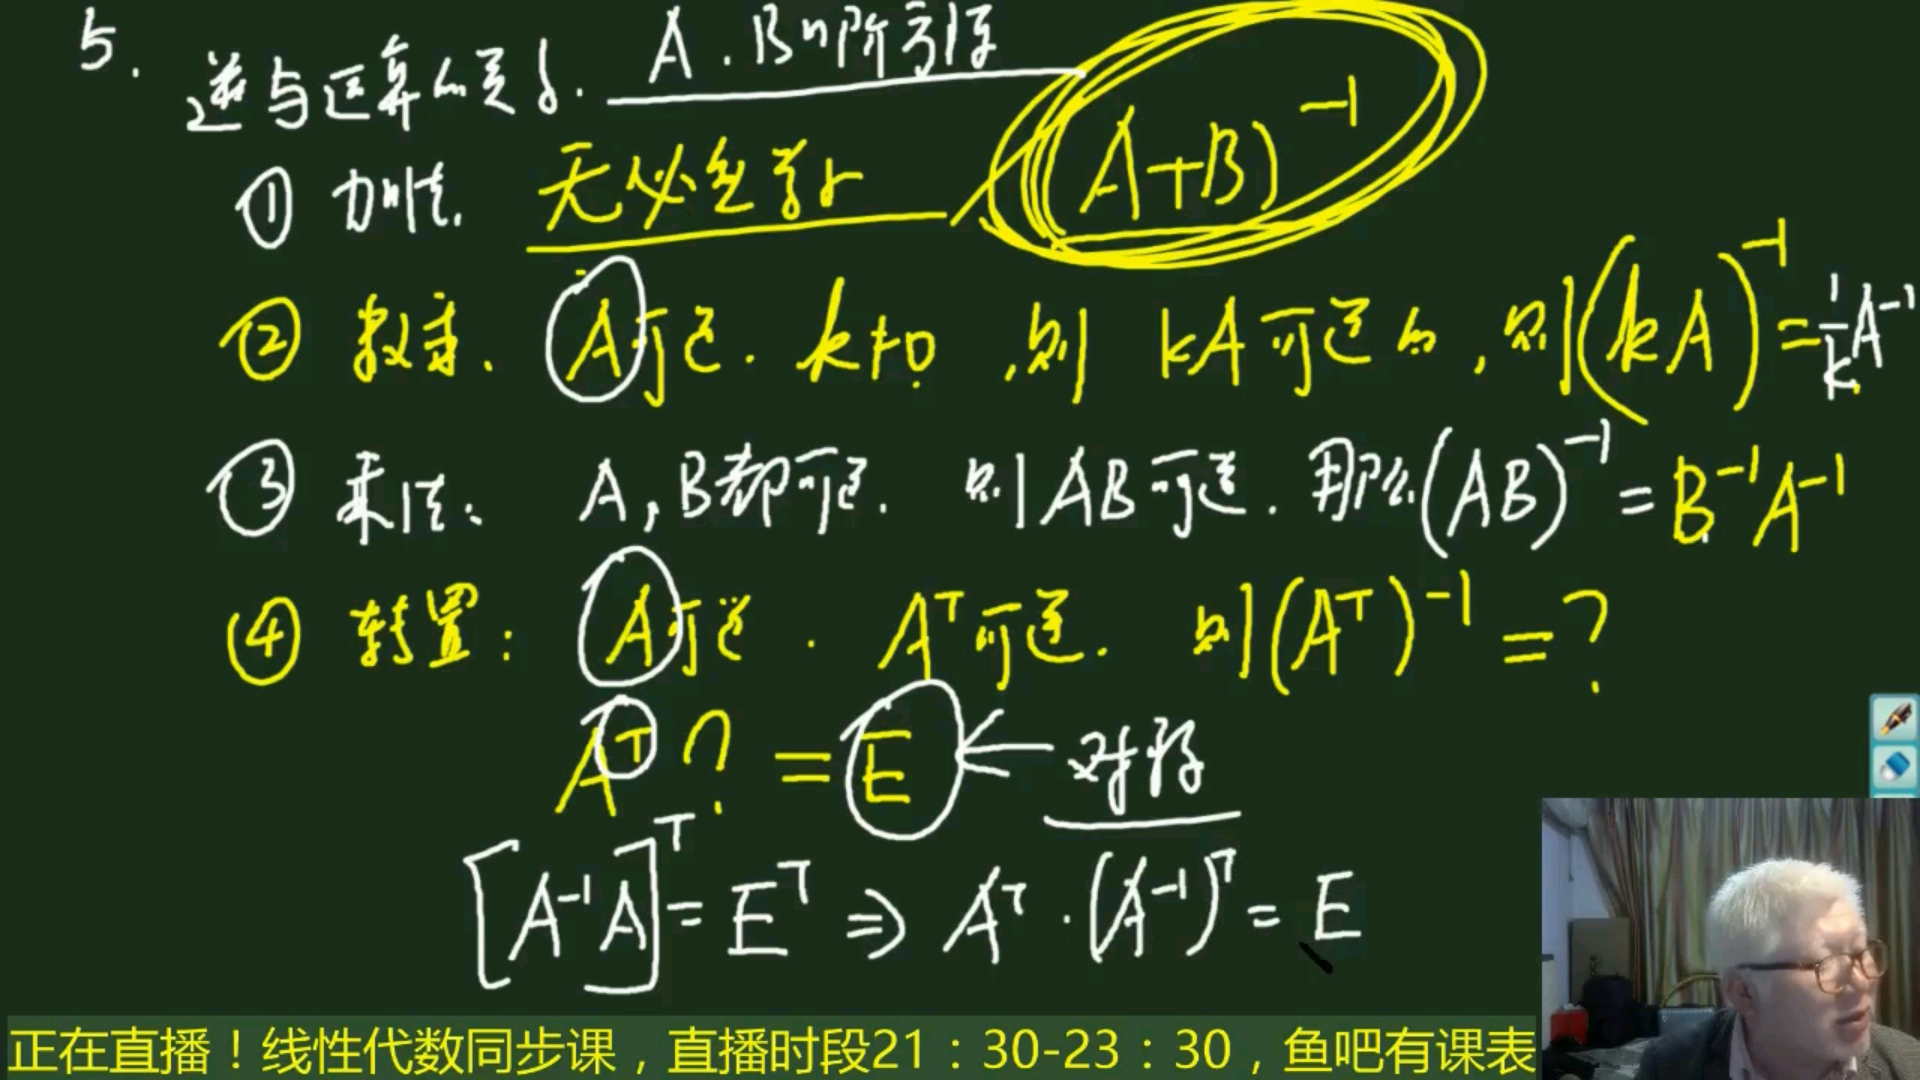 5. 逆与运算的关系. A.B n阶方阵
① 加法. 无必然学 (A+B)⁻¹
② 数乘. A可逆. k≠0, 则 kA可逆的, 则(kA)⁻¹=1/k A⁻¹
③ 乘法: A,B都可逆. 则AB可逆. 那么(AB)⁻¹=B⁻¹A⁻¹
④ 转置: A可逆. Aᵀ可逆. 则(Aᵀ)⁻¹=?
Aᵀ?=E ← 对称
[A⁻¹A]ᵀ=Eᵀ ⇒ Aᵀ·(A⁻¹)ᵀ=E
正在直播！线性代数同步课，直播时段21：30-23：30，鱼吧有课表